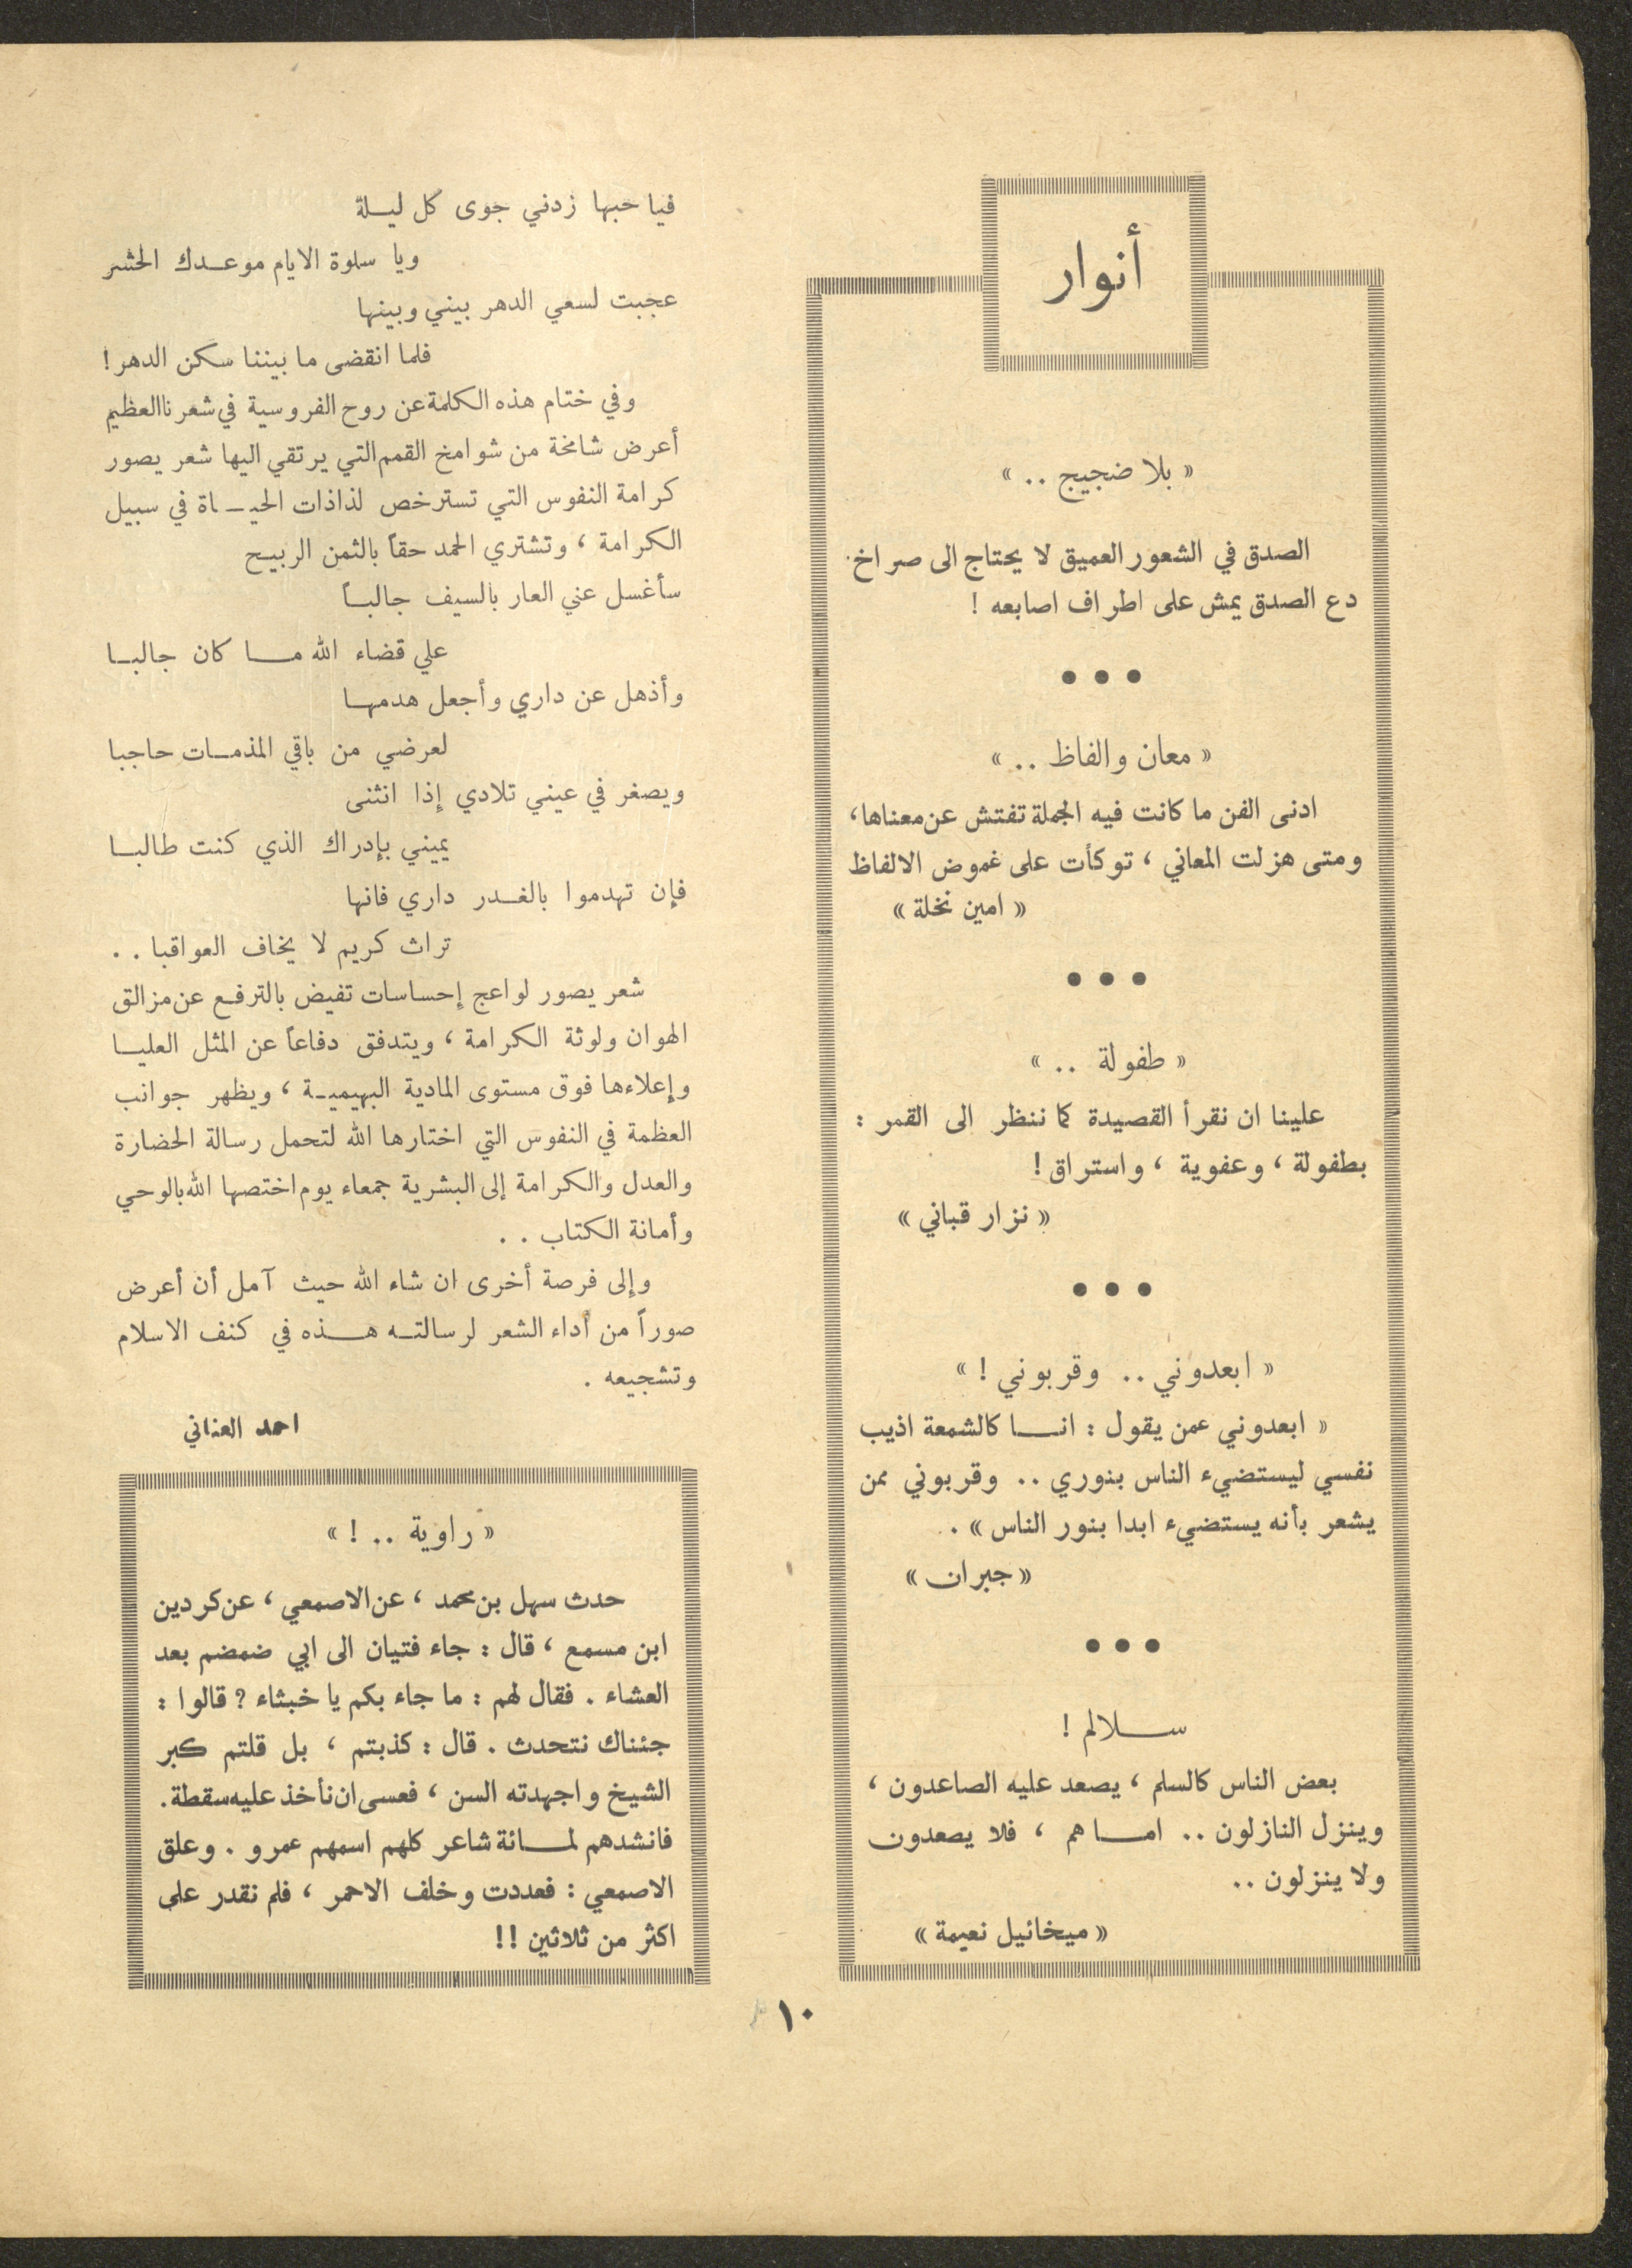 أنوار
« بلا ضجيج .. »
الصدق في الشعور العميق لا يحتاج الى صراخ .
دع الصدق يمش على اطراف اصابعه !
● ● ●
« معان والفاظ .. »
ادنى الفن ما كانت فيه الجملة تفتش عن معناها ،
ومتى هزلت المعاني ، توكأت على غموض الالفاظ
« امين نخلة »
● ● ●
« طفولة .. »
علينا ان نقرأ القصيدة كما ننظر الى القمر :
بطفولة ، وعفوية ، واستراق !
« نزار قباني »
● ● ●
« ابعدوني .. وقربوني ! »
« ابعدوني عمن يقول : انا كالشمعة اذيب
نفسي ليستضيء الناس بنوري .. وقربوني ممن
يشعر بأنه يستضيء ابدا بنور الناس » .
« جبران »
● ● ●
سلالم !
بعض الناس كالسلم ، يصعد عليه الصاعدون ،
وينزل النازلون .. اما هم ، فلا يصعدون
ولا ينزلون ..
« ميخائيل نعيمة »
فيا حبها زدني جوى كل ليلة
ويا سلوة الايام موعدك الحشر
عجبت لسعي الدهر بيني وبينها
فلما انقضى ما بيننا سكن الدهر !
وفي ختام هذه الكلمة عن روح الفروسية في شعرنا العظيم
أعرض شامخة من شوامخ القمم التي يرتقي اليها شعر يصور
كرامة النفوس التي تسترخص لذاذات الحياة في سبيل
الكرامة ، وتشتري الحمد حقاً بالثمن الربيح
سأغسل عني العار بالسيف جالباً
علي قضاء الله ما كان جالبا
وأذهل عن داري وأجعل هدمها
لعرضي من باقي المذمات حاجبا
ويصغر في عيني تلادي إذا انثنى
يميني بإدراك الذي كنت طالبا
فإن تهدموا بالغدر داري فانها
تراث كريم لا يخاف العواقبا . .
شعر يصور لواعج إحساسات تفيض بالترفع عن مزالق
الهوان ولوثة الكرامة ، ويتدفق دفاعاً عن المثل العليا
وإعلاءها فوق مستوى المادية البهيمية ، ويظهر جوانب
العظمة في النفوس التي اختارها الله لتحمل رسالة الحضارة
والعدل والكرامة إلى البشرية جمعاء يوم اختصها الله بالوحي
وأمانة الكتاب . .
وإلى فرصة أخرى ان شاء الله حيث آمل أن أعرض
صوراً من أداء الشعر لرسالته هذه في كنف الاسلام
وتشجيعه .
احمد العناني
« راوية .. ! »
حدث سهل بن محمد ، عن الاصمعي ، عن كردين
ابن مسمع ، قال : جاء فتيان الى ابي ضمضم بعد
العشاء . فقال لهم : ما جاء بكم يا خبثاء ؟ قالوا :
جئناك نتحدث . قال : كذبتم ، بل قلتم كبر
الشيخ واجهدته السن ، فعسى ان نأخذ عليه سقطة .
فانشدهم لمائة شاعر كلهم اسمهم عمرو . وعلق
الاصمعي : فعددت وخلف الاحمر ، فلم نقدر على
اكثر من ثلاثين !!
١٠